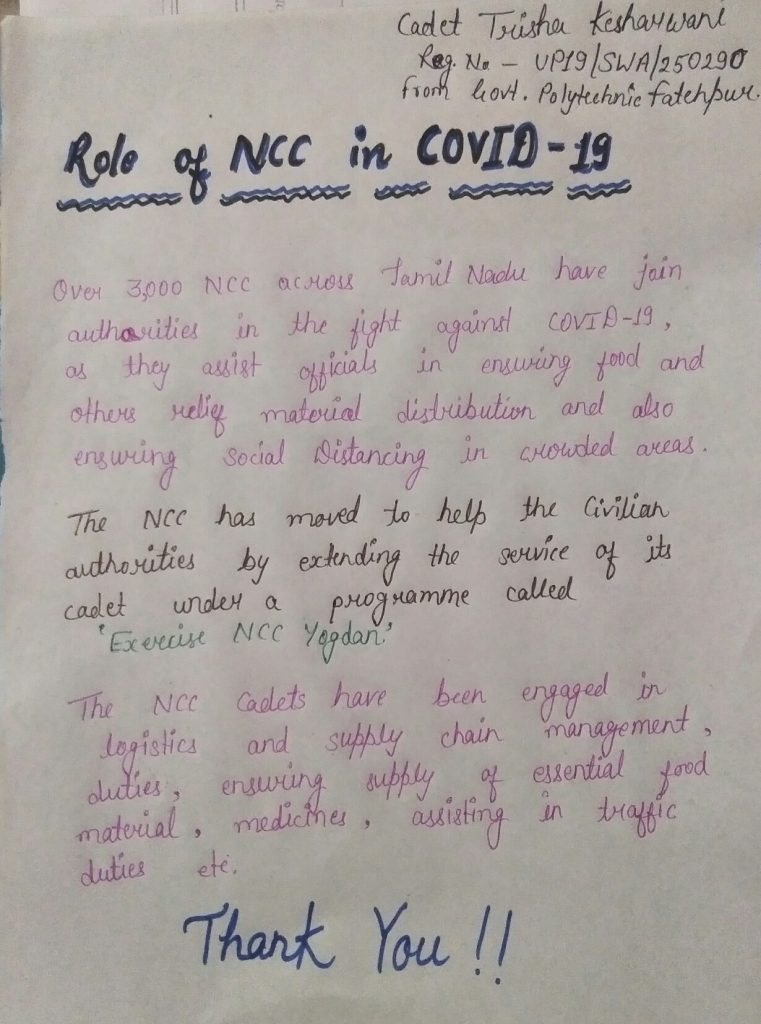 Cadet Trisha Kesharwani
Reg. No - UP19/SWA/250290
from Govt. Polytechnic fatehpur.
Role of NCC in COVID-19
Over 3,000 NCC across Tamil Nadu have join
authorities in the fight against COVID-19,
as they assist officials in ensuring food and
others relief material distribution and also
ensuring Social Distancing in crowded areas.
The NCC has moved to help the Civilian
authorities by extending the service of its
cadet under a programme called
'Exercise NCC Yogdan.'
The NCC Cadets have been engaged in
logistics and supply chain management,
duties, ensuring supply of essential food
material, medicines, assisting in traffic
duties etc.
Thank You !!